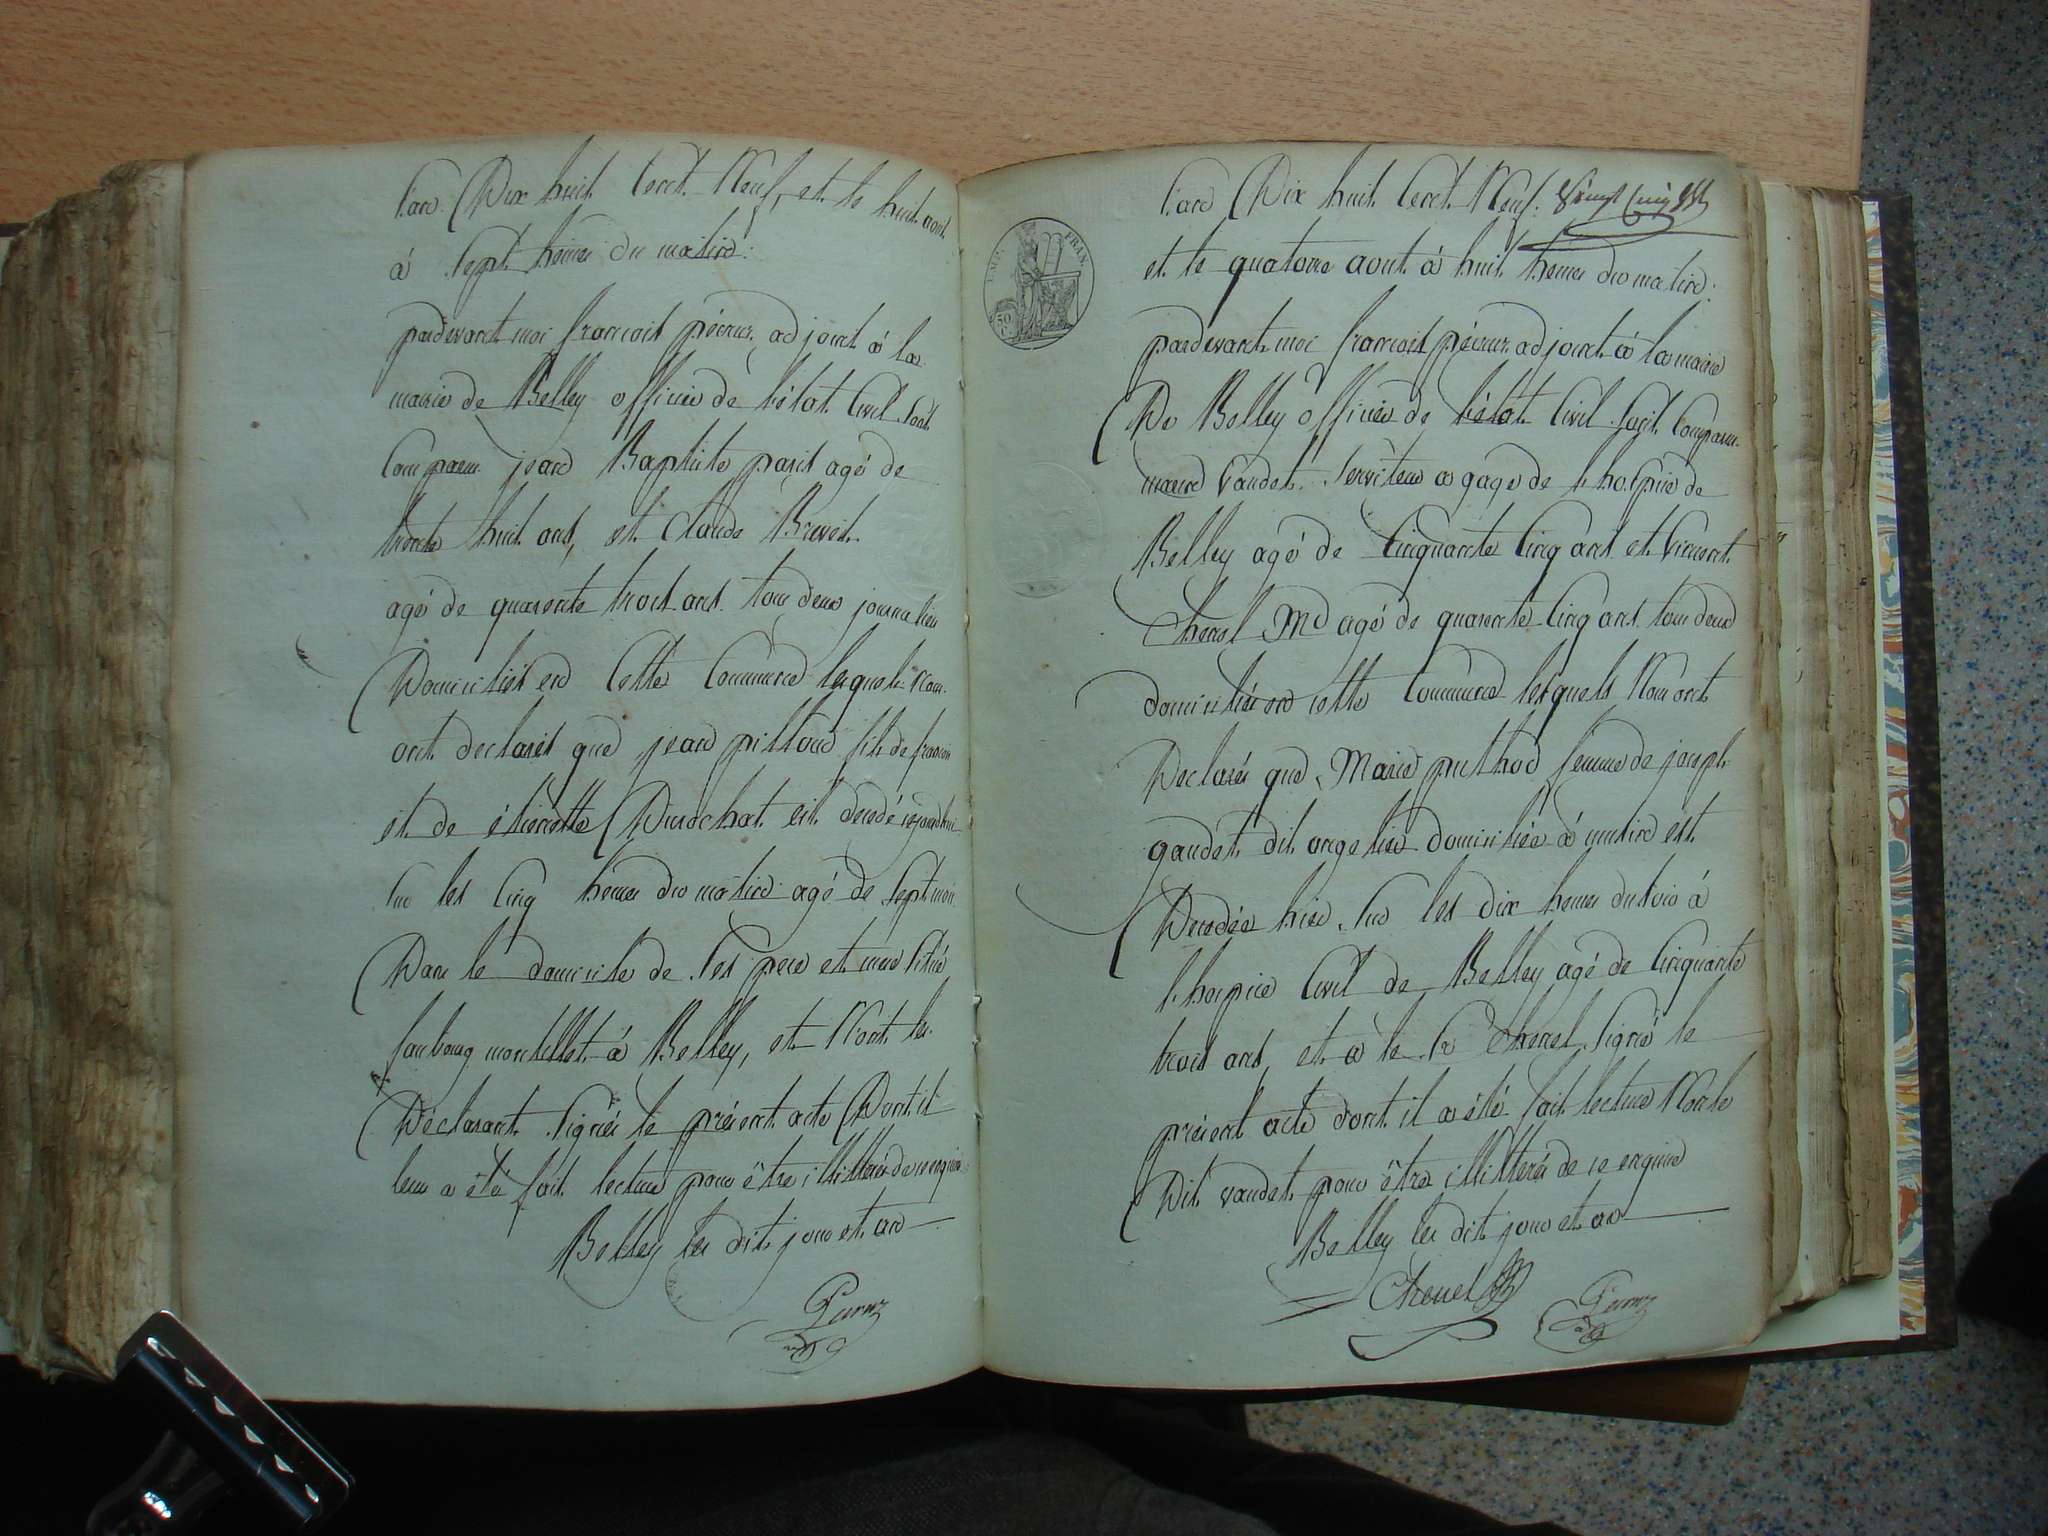 l'an Dix huit Cent Neuf, et le huit aout
à Sept heures du matin:
pardevant moi francois péernz adjoint à la
mairie de Belley officier de l'état Civil sont
Comparu jean Baptiste paris agé de
trente huit ans, et Claude Brevet
agé de quarente trois ans tous deux journalier
Domiciliés en Cette Commune lesquels nous
ont declarés que jean pilloud fils de francois
et de étiennette Durochat est decedé cejourdhui
sur les Cinq heures du matin agé de Sept mois
Dans le domicile de Ses pere et mere Situé
faubourg montillet à Belley, et N'ont les
Déclarant Signés le présent acte Dont il
leur a été fait lecture pour être illittérés de ce enquis
Belley les dit jour et an
l'an Dix huit Cent Neuf: Vingt Cinq
et le quatorze aout à huit heures du matin:
pardevant moi francois péernz adjoint à la mairie
De Belley officier de l'état Civil sont Comparu
vaudet Serviteur a gage de l'hospice de
Belley agé de Cinquante Cinq ans et Vincent
Chenel Md agé de quarente Cinq ans tous deux
domiciliés en cette Commune lesquels Nous ont
Declarés que Marie puthod femme de joseph
gaudet dit angelier domiciliée à musin est
Decedée hier Sur les dix heures du soir à
l'hospice Civil de Belley agé de Cinquante
trois ans, et a le Sr Chenel Signé le
présent acte dont il a été fait lecture Non le
Dit vaudet pour être illitterés de ce enquis
Belley les dit jour et an
Chenel
IMP. FRAN.
50 C.